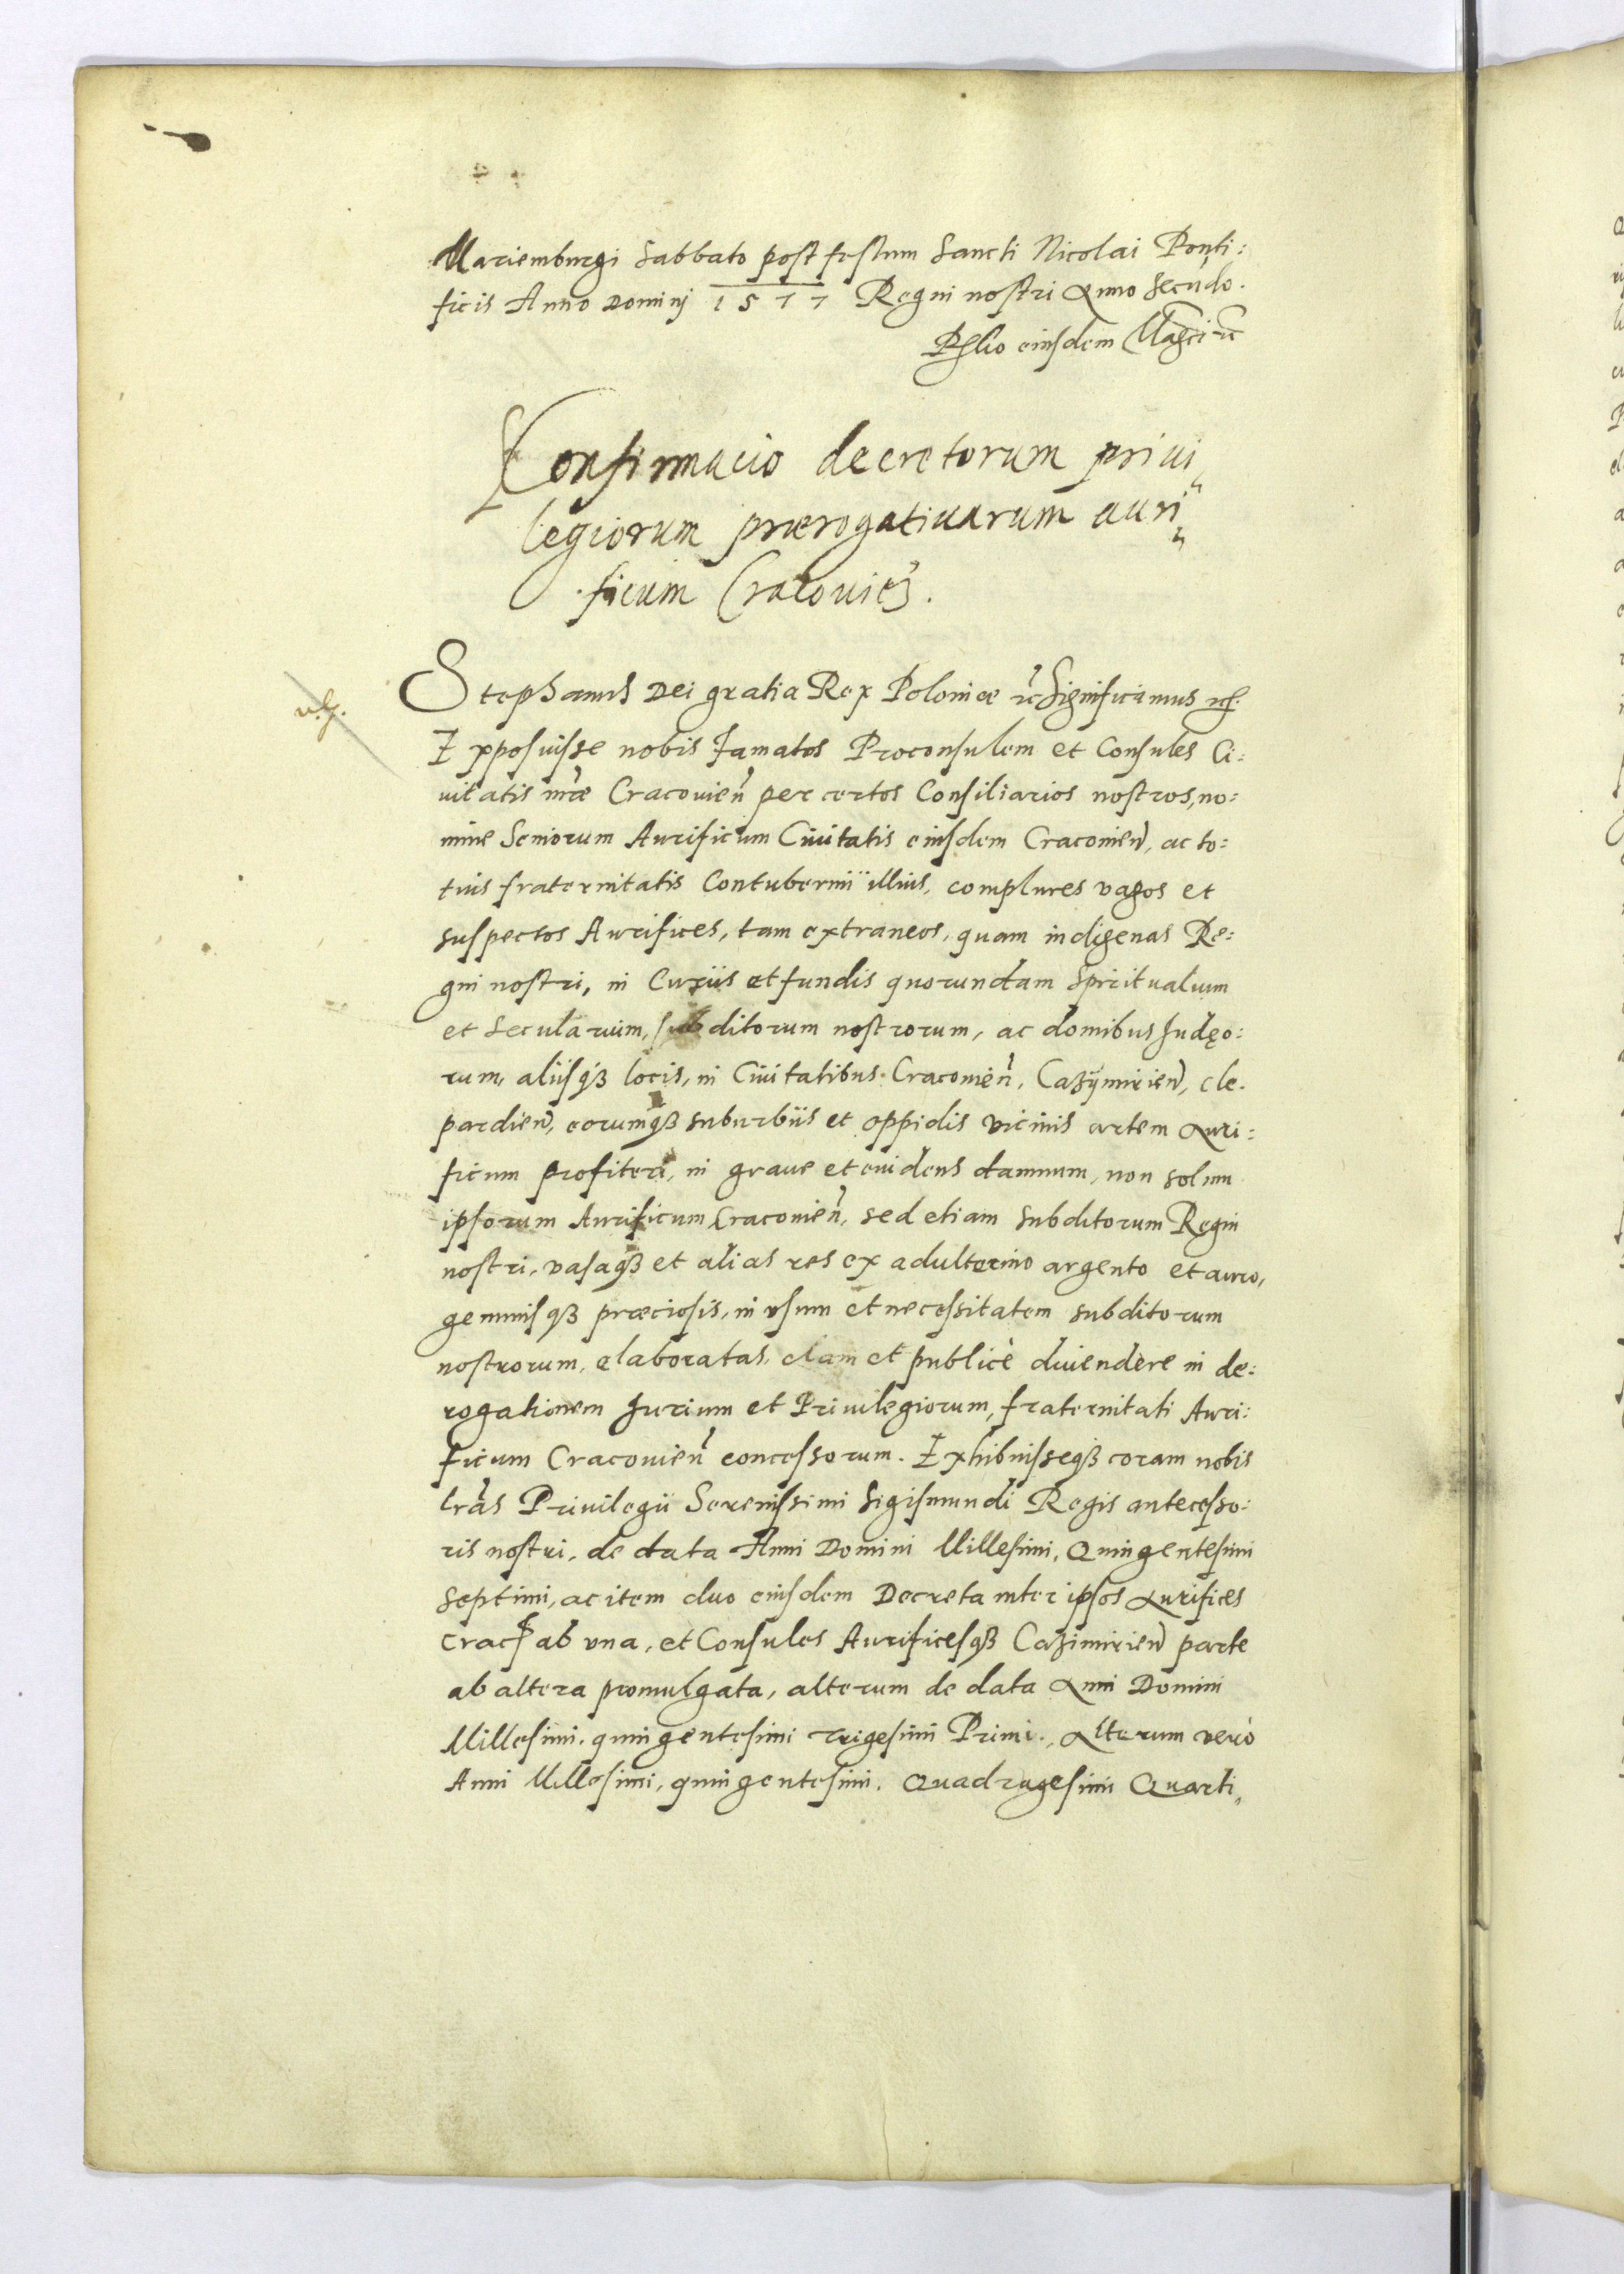 Mariemburgi Sabbato post festum Sancti Nicolai Ponti:
ficis Anno Dominj 1577 Regni nostri Anno Secūdo.
Rlio eiusdem Magci rc
Confirmacio decretorum priui„
legiorum prærogatiuarum auri„
ficum Cracovieñ.
Stephanus Dei gratia Rex Poloniæ rc Significamus rc.
Exposuisse nobis famatos Proconsulem et Consules Ci:
vitatis nr̃æ Cracovieñ per certos Consiliarios nostros, no:
mine Seniorum Aurificum Civitatis eiusdem Cracovieñ, ac to:
tius fraternitatis Contubernii illius, complures vagos et
suspectos Aurifices, tam extraneos, quam indigenas Re:
gni nostri, in Curiis et fundis quorundam Spiritualium
et Secularium, subditorum nostrorum, ac domibus Judęo:
rum, aliisqꝫ locis, in Civitatibus Cracovieñ, Cazÿmirieñ, Cle.
pardieñ, eorumqꝫ suburbiis et oppidis vicinis artem Auri:
ficum profiteri, in graue et euidens damnum, non solum
ipsorum Aurificum Cracovieñ, sed etiam Subditorum Regni
nostri, vasaqꝫ et alias res ex adulterino argento et auro,
gemmisqꝫ præciosis, in usum et necessitatem subditorum
nostrorum, elaboratas, clam et publicè diuendere in de:
rogationem Jurium et Priuilegiorum, fraternitati Auri:
ficum Cracovieñ concessorum. Exhibuisseqꝫ coram nobis
lr̃as Priuilegii Serenissimi Sigismundi Regis antecesso:
ris nostri, de data Anni Domini Millesimi, Quingentesimi
Septimi, ac item duo eiusdem Decreta inter ipsos Aurifices
Crac̃ ab una, et Consules Aurificesqꝫ Cazimirieñ parte
ab altera promulgata, alterum de data Anni Domini
Millesimi. quingentesimi Trigesimi Primi., Alterum verò
Anni Millesimi, quingentesimi, Quadragesimi Quarti,